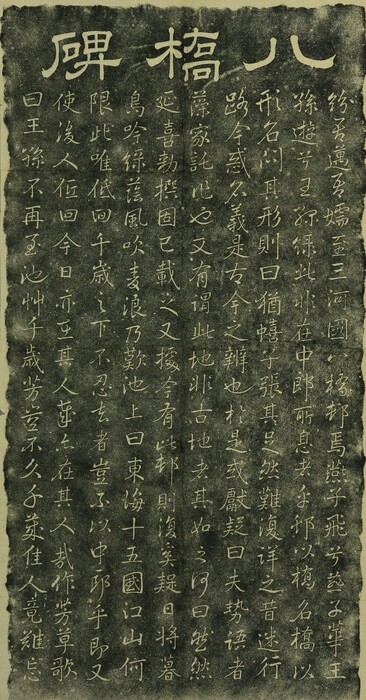 八橋碑
紛吾邁吾嬬至三河國八橋邨焉燕子飛兮燕子華王
孫遊兮王孫緑此非在中郎所息者乎邨以橋名橋以
形名問其形則曰猶蟢子張其足然難復詳之昔迷行
路今惑名義是古今之辨也於是或獻疑曰夫勢語者
藻家託作也又有謂此地非古地者其如之何曰然然
延喜勅撰固已載之又據有此邨則復奚疑日將暮
鳥吟緑蔭風吹麦浪乃歎池上曰東海十五國江山何
限此唯低回千歳之下不忍去者豈不以中郎乎即又
使後人低回今日亦在其人在其人哉作芳草歌
曰王孫不再至池艸千歳芳豈不久佳人竟難忘